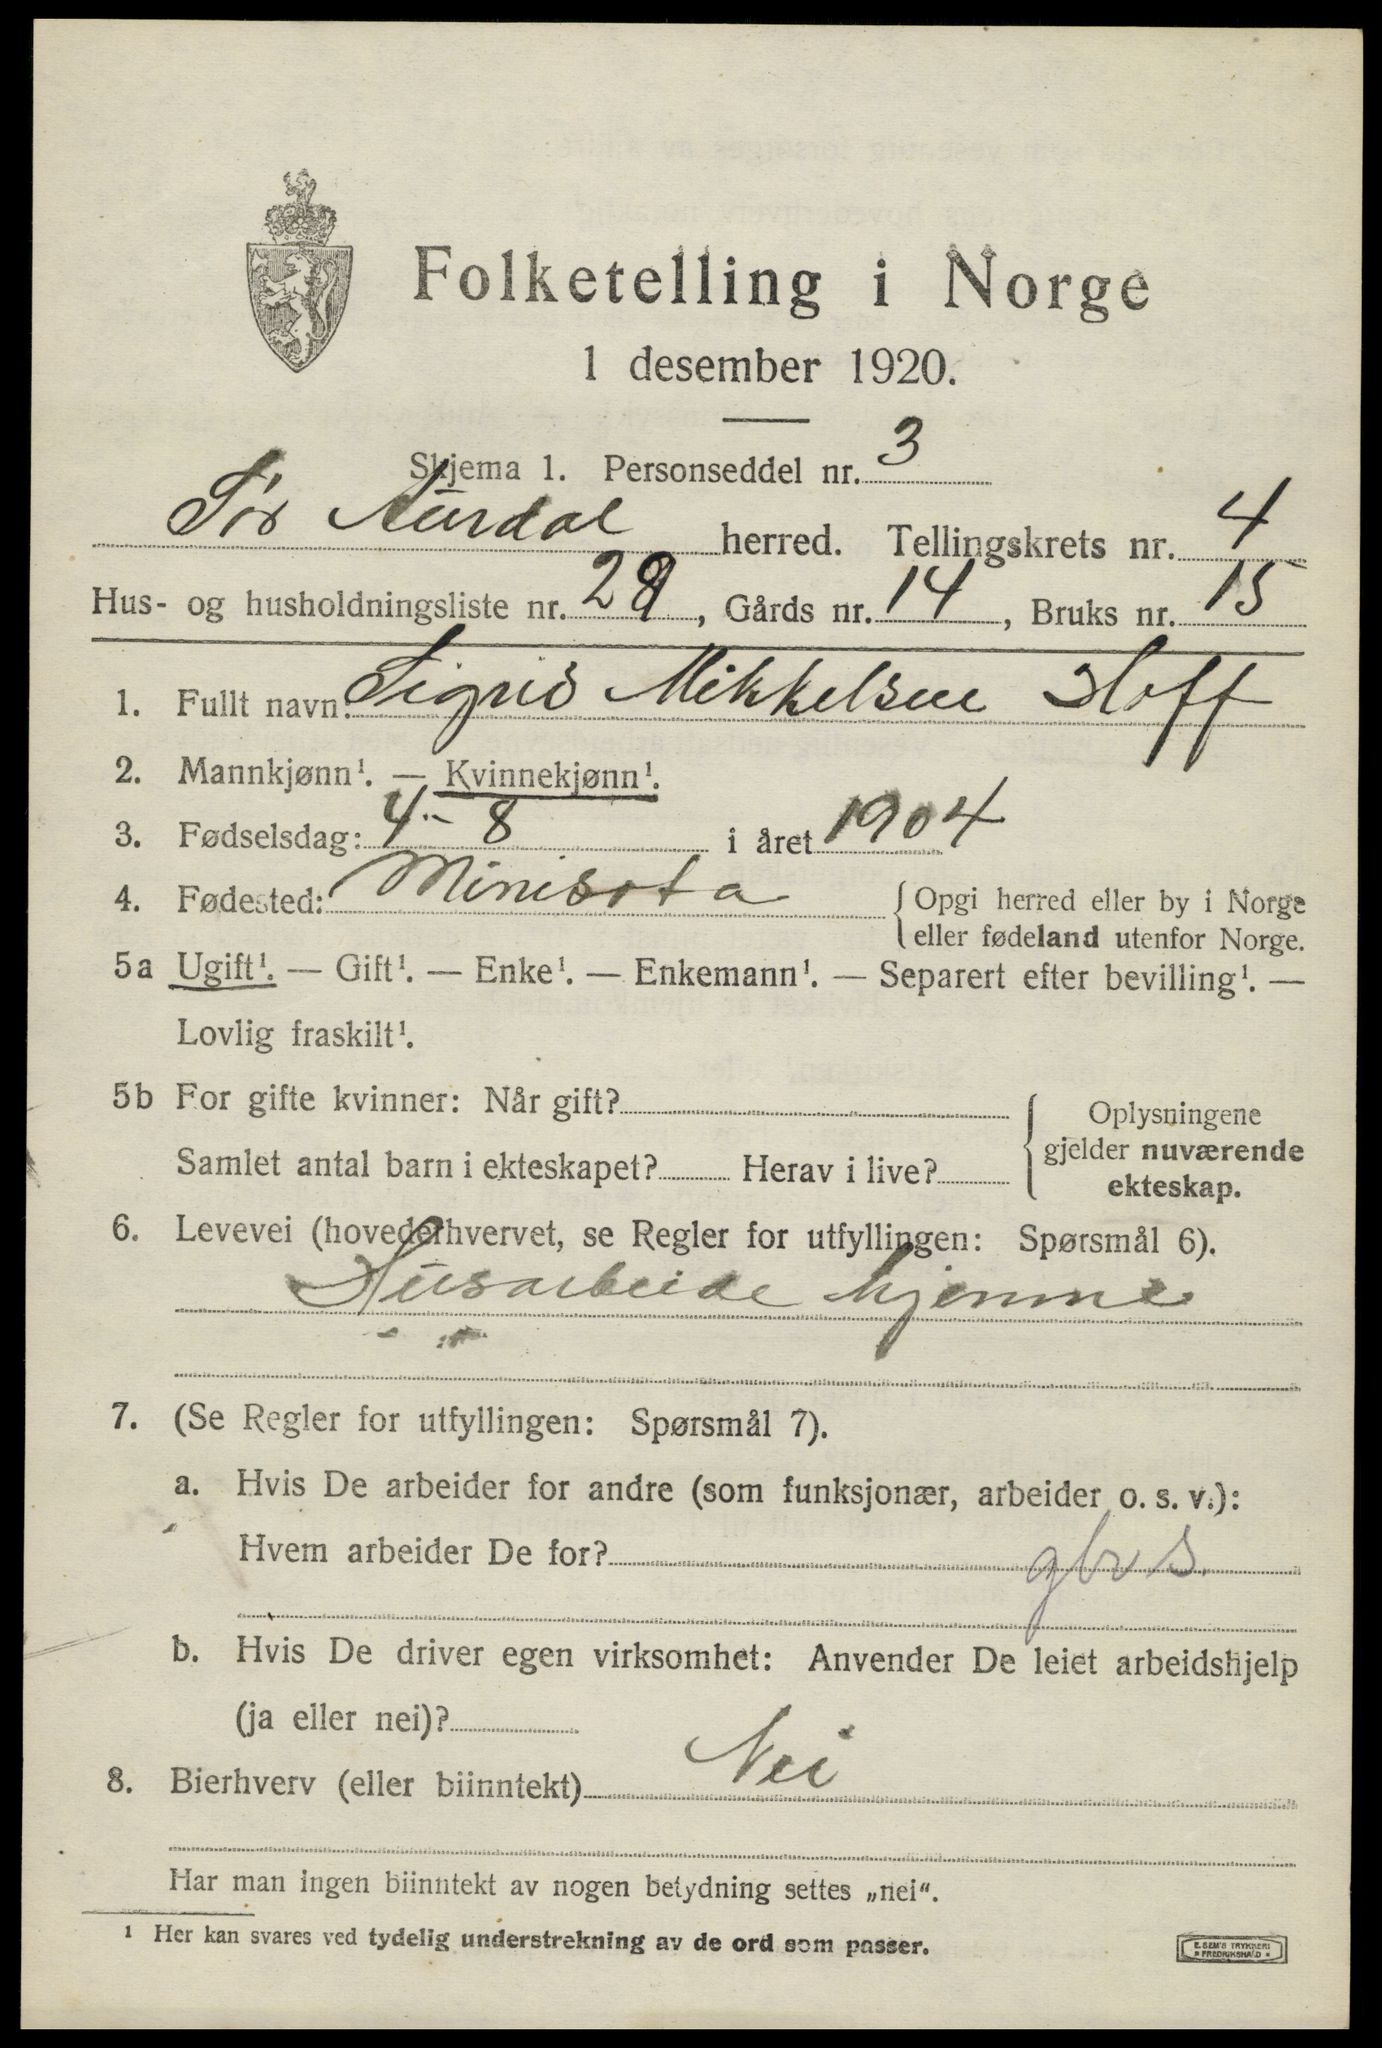 Folketelling i Norge
1 desember 1920.
Skjema 1. Personseddel nr. 3
Sør Aurdal herred. Tellingskrets nr. 4
Hus- og husholdningsliste nr. 29, Gårds nr. 14, Bruks nr. 15
1. Fullt navn: Sigrid Mikkelsen Hoff
2. Mannkjønn¹. — Kvinnekjønn¹.
3. Fødselsdag: 4.- 8 i året 1904
4. Fødested: Minisota { Opgi herred eller by i Norge
eller fødeland utenfor Norge.
5a Ugift¹. — Gift¹. — Enke¹. — Enkemann¹. — Separert efter bevilling¹. —
Lovlig fraskilt¹.
5b For gifte kvinner: Når gift? { Oplysningene
gjelder nuværende
Samlet antal barn i ekteskapet? Herav i live? ekteskap.
6. Levevei (hovederhvervet, se Regler for utfyllingen: Spørsmål 6).
Husarbeide hjemme
7. (Se Regler for utfyllingen: Spørsmål 7).
a. Hvis De arbeider for andre (som funksjonær, arbeider o. s. v.):
Hvem arbeider De for? gbrs.
b. Hvis De driver egen virksomhet: Anvender De leiet arbeidshjelp
(ja eller nei)?
8. Bierhverv (eller biinntekt) Nei
Har man ingen biinntekt av nogen betydning settes „nei“.
¹ Her kan svares ved tydelig understrekning av de ord som passer.
E. SEM'S TRYKKERI
* FREDRIKSHALD *